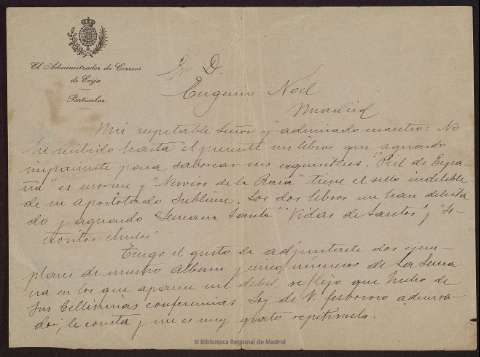 El Administrador de Correos
de Ecija
Particular
Sr. D.
Eugenio Noel
Madrid
Mi respetable Señor y admirado maestro: No
he recibido hasta el presente sus libros que aguardo
impaciente para saborear sus exquisiteces. "Piel de Espa-
ña" es enorme y "Nervios de la Raza" tiene el sello indeleble
de su apostolado sublime. Los dos libros me han deleita-
do y aguardo "Semana Santa" "Vidas de Santos" y
Tengo el gusto de adjuntarle dos ejem-
plares de nuestro album y cinco números de La Sema-
na en los que aparece un débil reflejo que hice de
sus conferencias. Soy de V. fervoroso admira-
do, le consta y me es muy grato repetírselo.
© Biblioteca Regional de Madrid